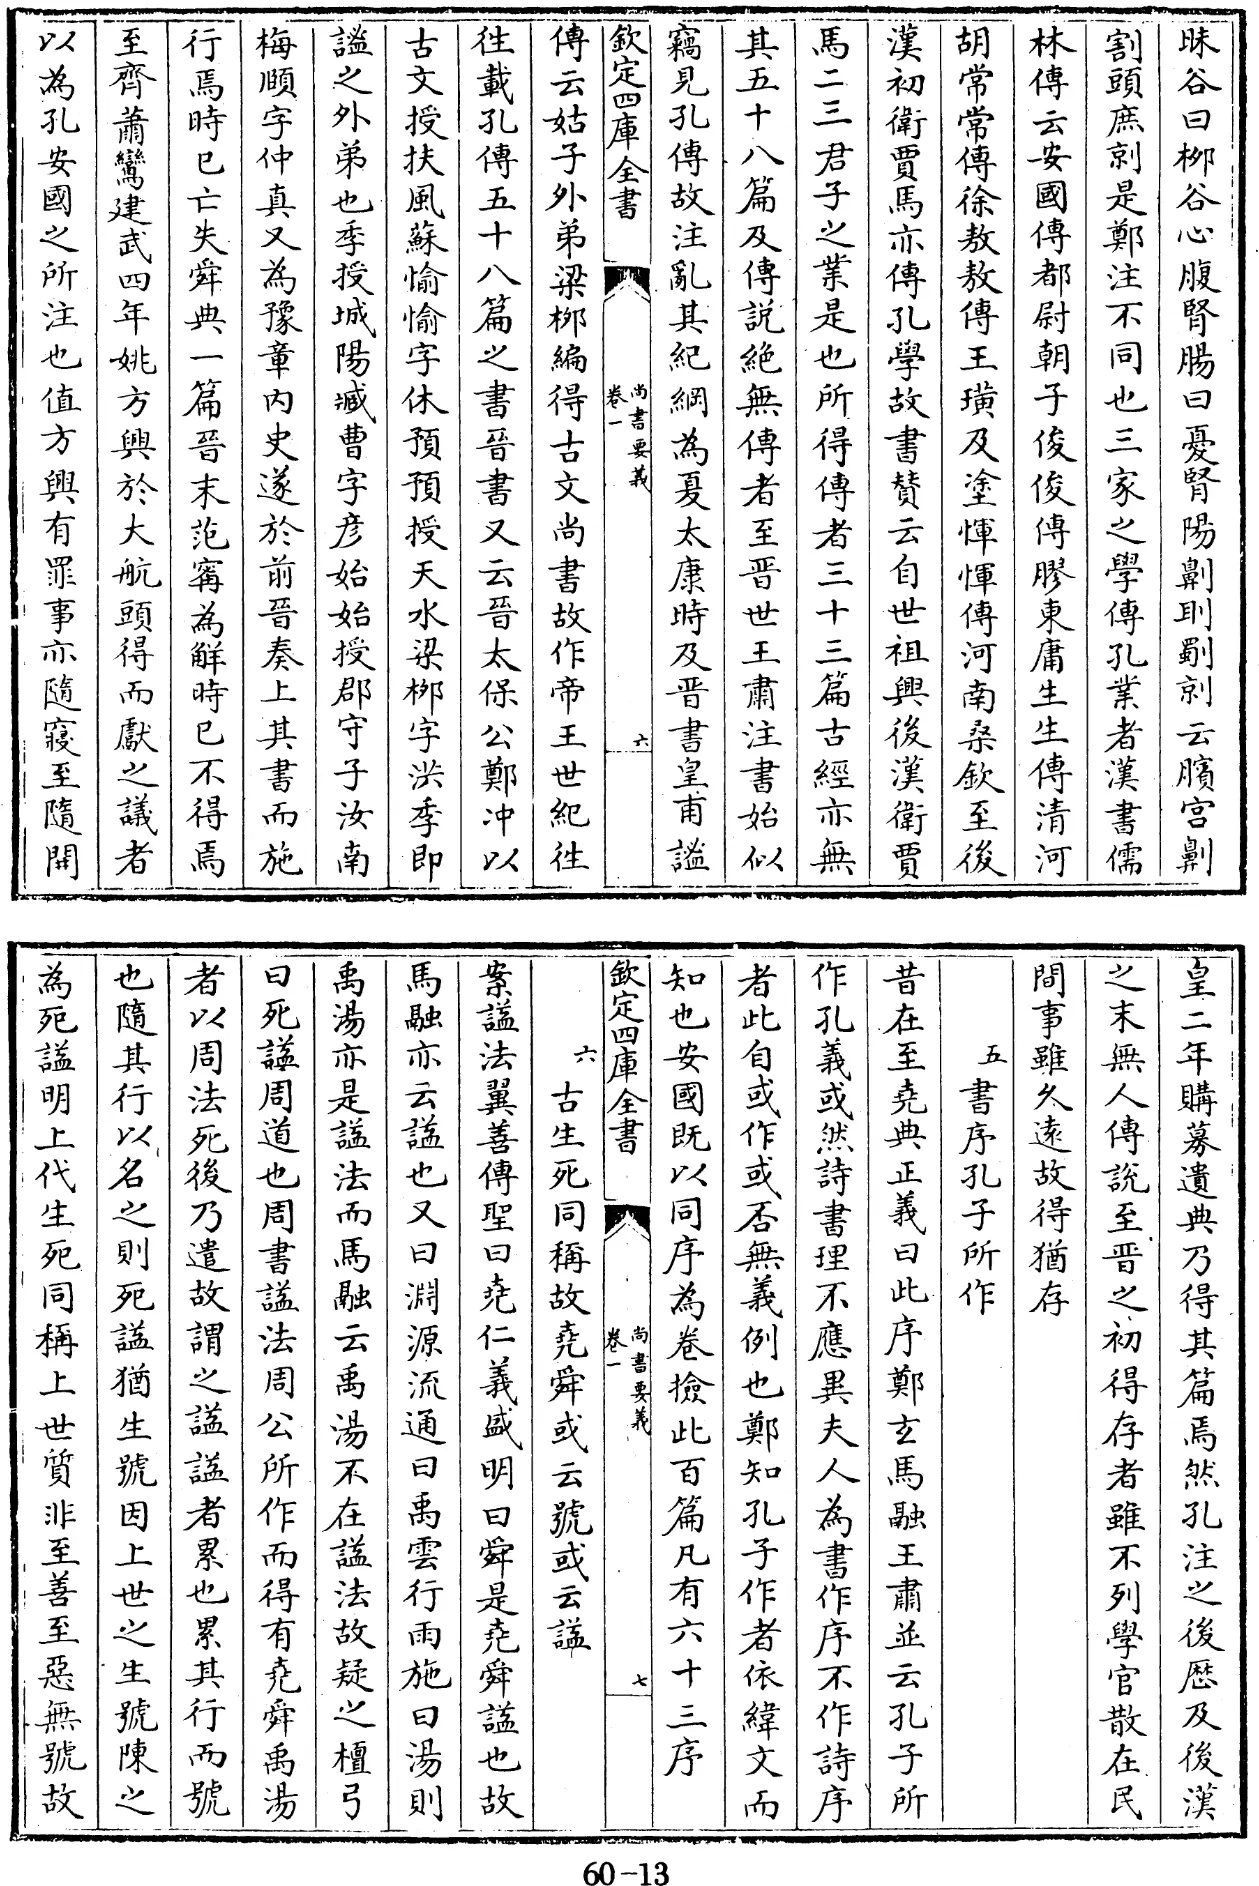 昧谷曰栁谷心腹腎腸曰憂腎陽劓刵劅剠云臏宫劓
割頭庶剠是鄭注不同也三家之學傳孔業者漢書儒
林傳云安國傳都尉朝子俊俊傳膠東庸生生傳清河
胡常常傳徐敖敖傳王璜及塗惲惲傳河南桑欽至後
漢初衛賈馬亦傳孔學故書賛云自世祖興後漢衛賈
馬二三君子之業是也所得傳者三十三篇古經亦無
其五十八篇及傳説絶無傳者至晋世王肅注書始似
竊見孔傳故注亂其紀綱為夏太康時及晋書皇甫謐
欽定四庫全書
尚書要義
卷一
六
傳云姑子外弟梁栁編得古文尚書故作帝王世紀徃
徃載孔傳五十八篇之書晉書又云晉太保公鄭冲以
古文授扶風蘇愉愉字休預預授天水梁栁字洪季即
謐之外弟也季授城陽臧曹字彦始始授郡守子汝南
梅頤字仲真又為豫章内史遂於前晉奏上其書而施
行焉時已亡失舜典一篇晉末范甯為解時已不得焉
至齊蕭鸞建武四年姚方興於大航頭得而獻之議者
以為孔安國之所注也值方興有罪事亦隨寢至隨開
皇二年購募遺典乃得其篇焉然孔注之後歴及後漢
之末無人傳説至晋之初得存者雖不列學官散在民
間事雖久逺故得猶存
五書序孔子所作
昔在至堯典正義曰此序鄭玄馬融王肅並云孔子所
作孔義或然詩書理不應異夫人為書作序不作詩序
者此自或作或否無義例也鄭知孔子作者依緯文而
知也安國既以同序為卷撿此百篇凡有六十三序
欽定四庫全書
尚書要義
卷一
七
六古生死同稱故堯舜或云號或云諡
案諡法翼善傳聖曰堯仁義盛明曰舜是堯舜諡也故
馬融亦云諡也又曰淵源流通曰禹雲行雨施曰湯則
禹湯亦是諡法而馬融云禹湯不在諡法故疑之檀弓
曰死諡周道也周書諡法周公所作而得有堯舜禹湯
者以周法死後乃遣故謂之諡諡者累也累其行而號
也隨其行以名之則死諡猶生號因上世之生號陳之
為死諡明上代生死同稱上世質非至善至惡無號故
60-13